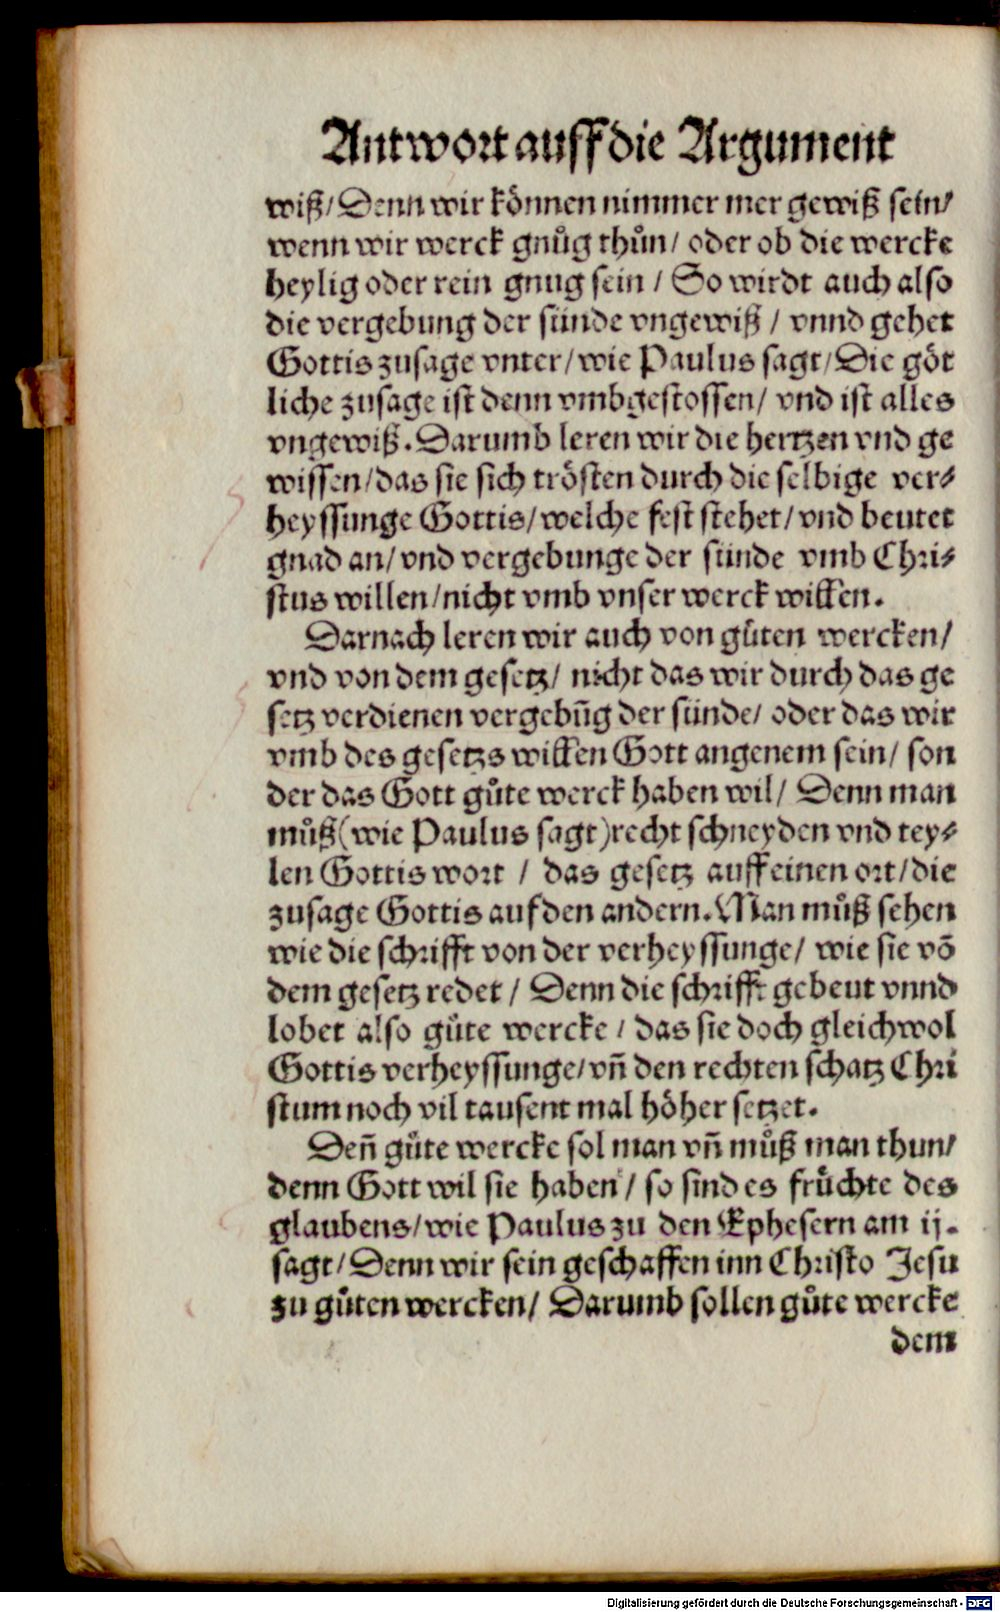 Antwort auff die Argument
wiß/ Denn wir können nimmer mer gewiß sein/
wenn wir werck gnůg thůn/ oder ob die wercke
heylig oder rein gnug sein / So wirdt auch also
die vergebung der sünde vngewiß / vnnd gehet
Gottis zusage vnter/ wie Paulus sagt/ Die göt
liche zusage ist denn vmbgestossen/ vnd ist alles
vngewiß. Darumb leren wir die hertzen vnd ge
wissen/ das sie sich trösten durch die selbige ver⸗
heyssunge Gottis/ welche fest stehet/ vnd beutet
gnad an/ vnd vergebunge der sünde vmb Chri⸗
stus willen/ nicht vmb vnser werck willen.
Darnach leren wir auch von gůten wercken/
vnd von dem gesetz/ nicht das wir durch das ge
setz verdienen vergebūg der sünde/ oder das wir
vmb des gesetzs willen Gott angenem sein/ son
der das Gott gůte werck haben wil/ Denn man
můß (wie Paulus sagt) recht schneyden vnd tey⸗
len Gottis wort / das gesetz auff einen ort/ die
zusage Gottis auf den andern. Man můß sehen
wie die schrifft von der verheyssunge/ wie sie vō
dem gesetz redet / Denn die schrifft gebeut vnnd
lobet also gůte wercke / das sie doch gleichwol
Gottis verheyssunge/ vn̄ den rechten schatz Chri
stum noch vil tausent mal höher setzet.
Den̄ gůte wercke sol man vn̄ můß man thun/
denn Gott wil sie haben / so sind es früchte des
glaubens/ wie Paulus zu den Ephesern am ij.
sagt/ Denn wir sein geschaffen inn Christo Jesu
zu gůten wercken/ Darumb sollen gůte wercke
dem
Digitalisierung gefördert durch die Deutsche Forschungsgemeinschaft - DFG